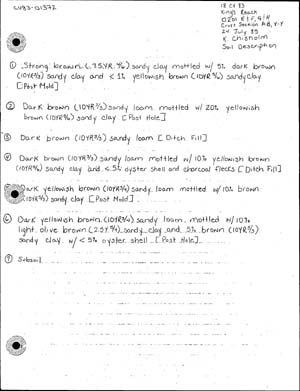 18 CV 83
Kings Reach
Cross Section AB, X-Y
24 July 85
K. Chisholm
Soil Description
① Strong brown (7.5YR 4/6) sandy clay mottled w/ 5% dark brown
(10YR3/3) sandy clay and < 5% yellowish brown (10YR 5/6) sandy clay
[Post Mold]
② Dark brown (10YR3/3) sandy loam mottled w/ 20% yellowish
brown (10YR5/6) sandy clay [Post Hole]
③ Dark brown (10YR3/3) sandy loam [Ditch Fill]
④ Dark brown (10YR3/3) sandy loam mottled w/ 10% yellowish brown
(10YR5/6) sandy clay and <.5% oyster shell and charcoal flecks [Ditch Fill]
Dark yellowish brown (10YR3/4) sandy loam mottled w/ 10% brown
(10YR5/3) sandy clay [Post Mold]
⑥ Dark yellowish brown (10YR3/4) sandy loam mottled w/ 10%
light olive brown (2.5Y 5/4) sandy clay and 5% brown (10YR5/3)
sandy clay w/ < 5% oyster shell [Post Hole]
⑦ Subsoil